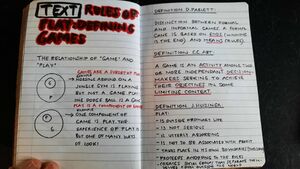 TEXT RULES OF
PLAY: DEFINING
GAMES
THE RELATIONSHIP OF "GAME" AND
"PLAY"
GAMES ARE A SUBSET OF PLAY
HORSING AROUND ON A
JUNGLE GYM IS PLAYING
BUT NOT A GAME BUT POST
THE DODGE BALL IS A GAME
PLAY IS A COMPONENT OF GAMES
ONE COMPONENT OF
GAMES IS PLAY. THE
EXPERIENCE OF PLAY IS
BUT ONE OF MANY WAYS
TO LOOK!
DEFINITION D. PARLETT:
DISTINCTION BETWEEN FORMAL
AND INFORMAL GAMES. A FORMAL
GAME IS BASED ON ENDS (WINNING
IS THE END) AND MEANS (RULES).
DEFINITION C.C. ABT:
A GAME IS AN ACTIVITY AMONG TWO
OR MORE INDEPENDENT DECISION-
MAKERS SEEKING TO ACHIEVE
THEIR OBJECTIVES IN SOME
LIMITING CONTEXT
DEFINITION J. HUIZINGA:
PLAY:
- IS OUTSIDE ORDINARY LIFE
- IS NOT SERIOUS
- IS UTTERLY ABSORBING
- IS NOT TO BE ASSOCIATED WITH PROFIT
- TAKES PLACE IN ITS OWN BOUNDARIES
- PROCEEDS ACCORDING TO THE RULES
- CREATES SOCIAL GROUPS THAT SEPARATE THEM-